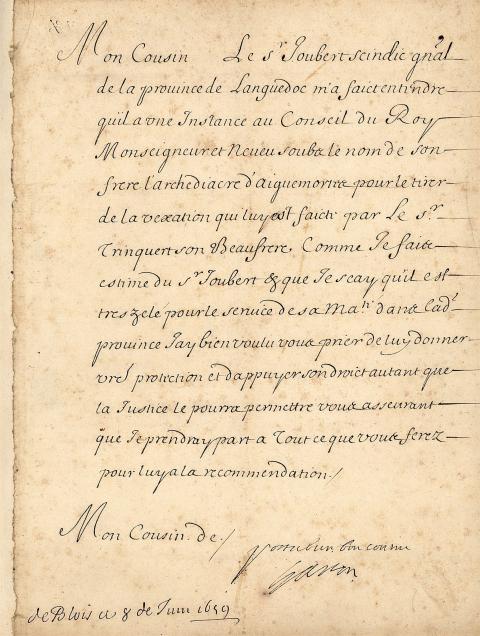 Mon Cousin Le sr Joubert scindic gnal
de la province de Languedoc m'a faict entendre
quil a vne Instance au Conseil du Roy
Monseigneur et Neueu soubz le nom de son
frere l'archediacre d'Aiguemortes pour le tirer
de la vexation qui luy est faicte par Le sr
Trinquert son Beaufrere, Comme Je faits
estime du sr Joubert & que Je scay qu'il est
tres zelé pour le service de sa Mati dans lad
province Jay bien voulu vous prier de luy donner
vre protection et d'appuyer son droict autant que
la Justice le pourra permettre vous asseurant
que Je prendray part a Tout ce que vous ferez
pour luy a la recommendation./
Mon Cousin de./
Vostre bien bon cousin
Gaston
de Blois ce 8 de Juin 1659